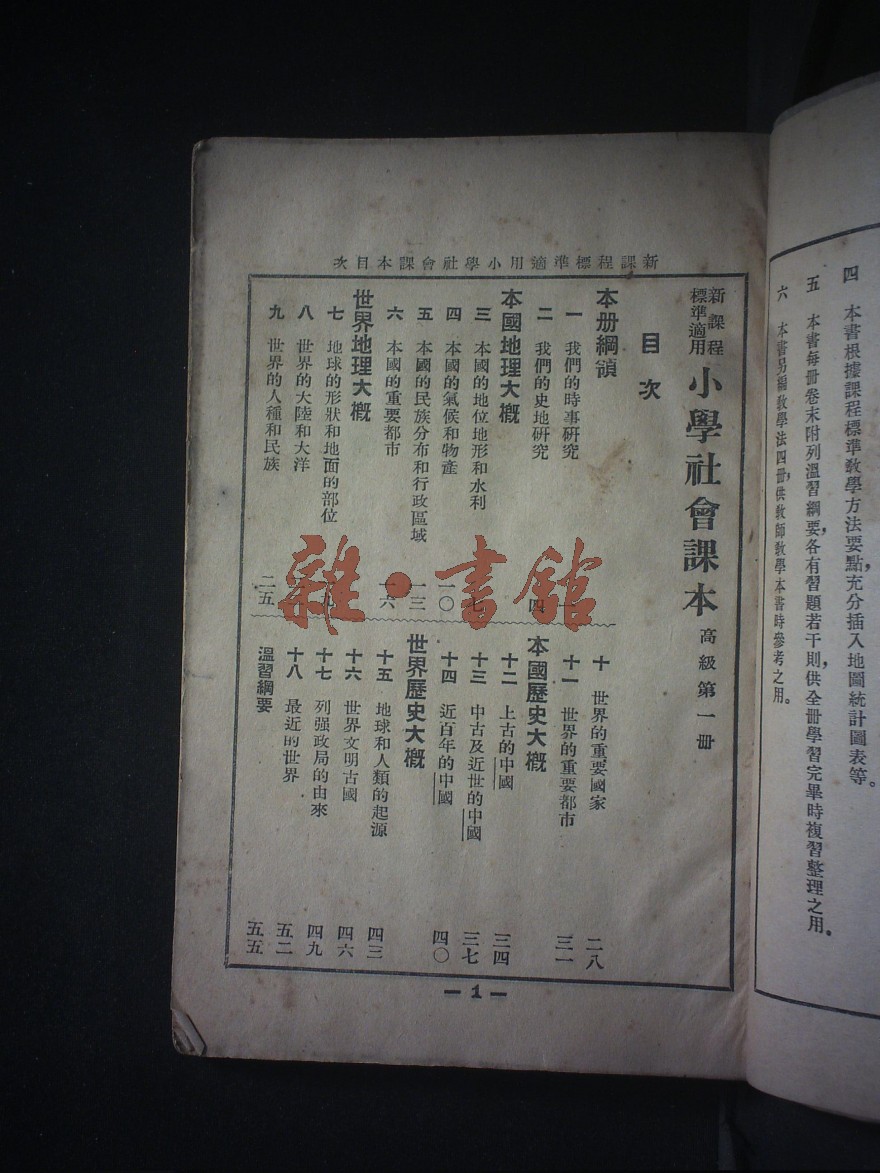 四　本書根據課程標準教學方法要點，充分插入地圖統計圖表等。
五　本書每冊卷末附列溫習綱要，各有習題若干則，供全冊學習完畢時複習整理之用。
六　本書另編教學法四冊，供教師教學本書時參考之用。
新課程標準適用小學社會課本目次
新課程標準適用 小學社會課本 高級第一冊
目次
本册綱領
一 我們的時事研究
二 我們的史地研究 四
本國地理大概
三 本國的地位地形和水利 七
四 本國的氣候和物產 一〇
五 本國的民族分布和行政區域 一三
六 本國的重要都市 一六
世界地理大概
七 地球的形狀和地面的部位
八 世界的大陸和大洋
九 世界的人種和民族 二五
十 世界的重要國家 二八
十一 世界的重要都市 三一
本國歷史大概
十二 上古的中國 三四
十三 中古及近世的中國 三七
十四 近百年的中國 四〇
世界歷史大概
十五 地球和人類的起源 四三
十六 世界文明古國 四六
十七 列强政局的由來 四九
十八 最近的世界 五二
溫習綱要 五五
— 1 —
雜·書館